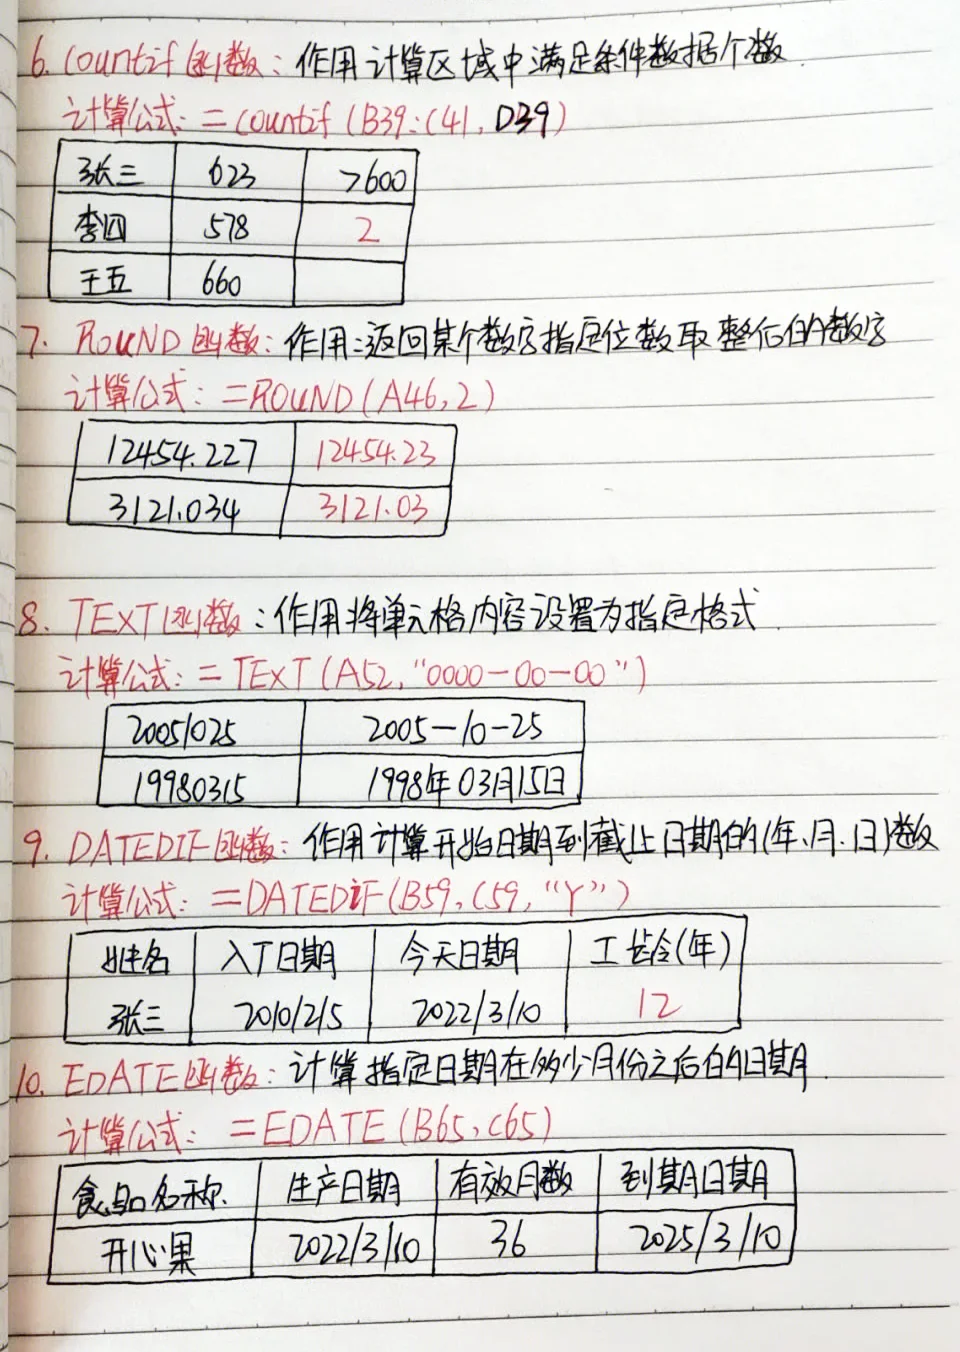 6. Countif函数：作用计算区域中满足条件数据个数
计算公式：=countif(B39:C41, D39)
张三 623 >600
李四 578 2
王五 660
7. ROUND函数：作用：返回某个数字指定位数取整后的数字
计算公式：=ROUND(A46,2)
12454.227 12454.23
3121.034 3121.03
8. TEXT函数：作用将单元格内容设置为指定格式
计算公式：=TEXT(A52,"0000-00-00")
20051025 2005-10-25
19980315 1998年03月15日
9. DATEDIF函数：作用计算开始日期到截止日期的(年、月.日)数
计算公式：=DATEDiF(B59, C59, "Y")
姓名 入丁日期 今天日期 工龄(年)
张三 2010/2/5 2022/3/10 12
10. EDATE函数：计算指定日期在多少月份之后的日期
计算公式：=EDATE(B65, C65)
食品名称 生产日期 有效月数 到期日期
开心果 2022/3/10 36 2025/3/10